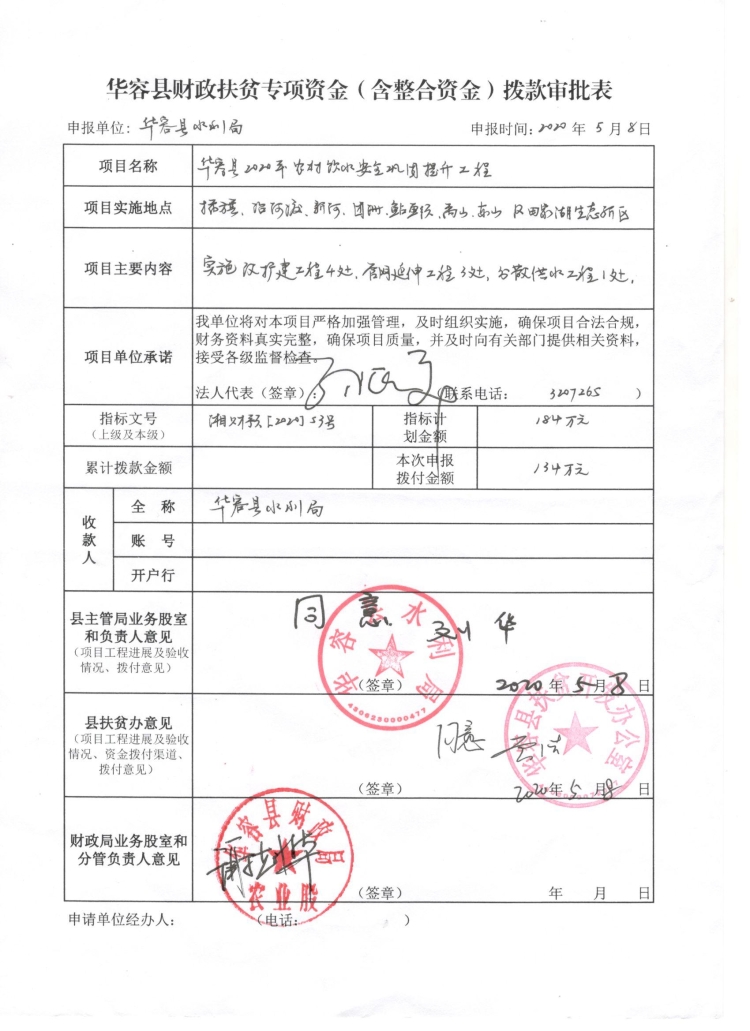 华容县财政扶贫专项资金（含整合资金）拨款审批表
申报单位：华容县水利局 申报时间：2020年5月8日
项目名称 华容县2020年农村饮水安全巩固提升工程
项目实施地点 插旗、治河渡、新河、团洲、鲇鱼须、禹山、东山及田家湖生态新区
项目主要内容 实施改扩建工程4处，管网延伸工程3处，分散供水工程1处，
项目单位承诺
我单位将对本项目严格加强管理，及时组织实施，确保项目合法合规，
财务资料真实完整，确保项目质量，并及时向有关部门提供相关资料，
接受各级监督检查。
法人代表（签章）： （联系电话： 3207265 ）
指标文号
（上级及本级）
湘财预[2020]53号
指标计
划金额
184万元
累计拨款金额
本次申报
拨付金额
134万元
收款人
全称 华容县水利局
账号
开户行
县主管局业务股室
和负责人意见
（项目工程进展及验收
情况、拨付意见）
同意 刘华
华容县水利局
4306230000477
（签章） 2020年5月8日
县扶贫办意见
（项目工程进展及验收
情况、资金拨付渠道、
拨付意见）
同意
华容县扶贫开发办公室
（签章） 2020年5月8日
财政局业务股室和
分管负责人意见
华容县财政局
农业股
（签章） 年 月 日
申请单位经办人： （电话： ）